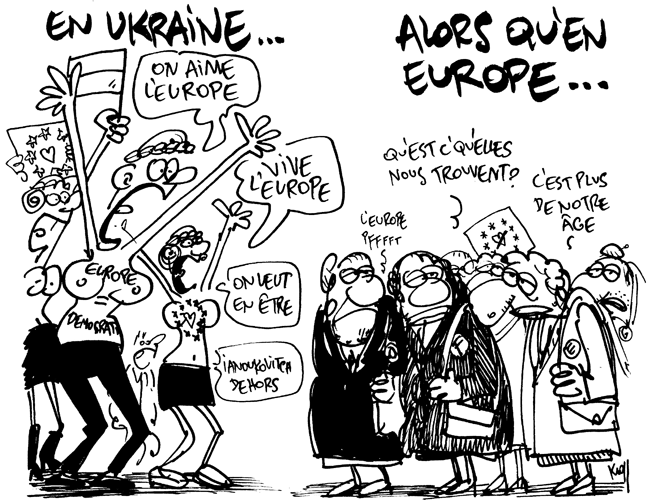 EN UKRAINE...
ALORS QU'EN
EUROPE...
ON AIME
L'EUROPE
VIVE
L'EUROPE
ON VEUT
EN ÊTRE
IANOUKOVITCH
DEHORS
EUROPE
DEMOCRATI
QU'EST C'QU'ELLES
NOUS TROUVENT?
C'EST PLUS
DE NOTRE
ÂGE
L'EUROPE
PFFFFT
Kroll